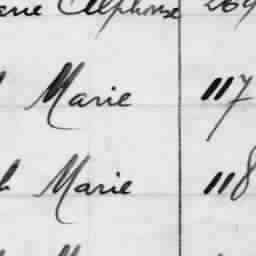 Alphonse 269
Marie 117
Marie 118